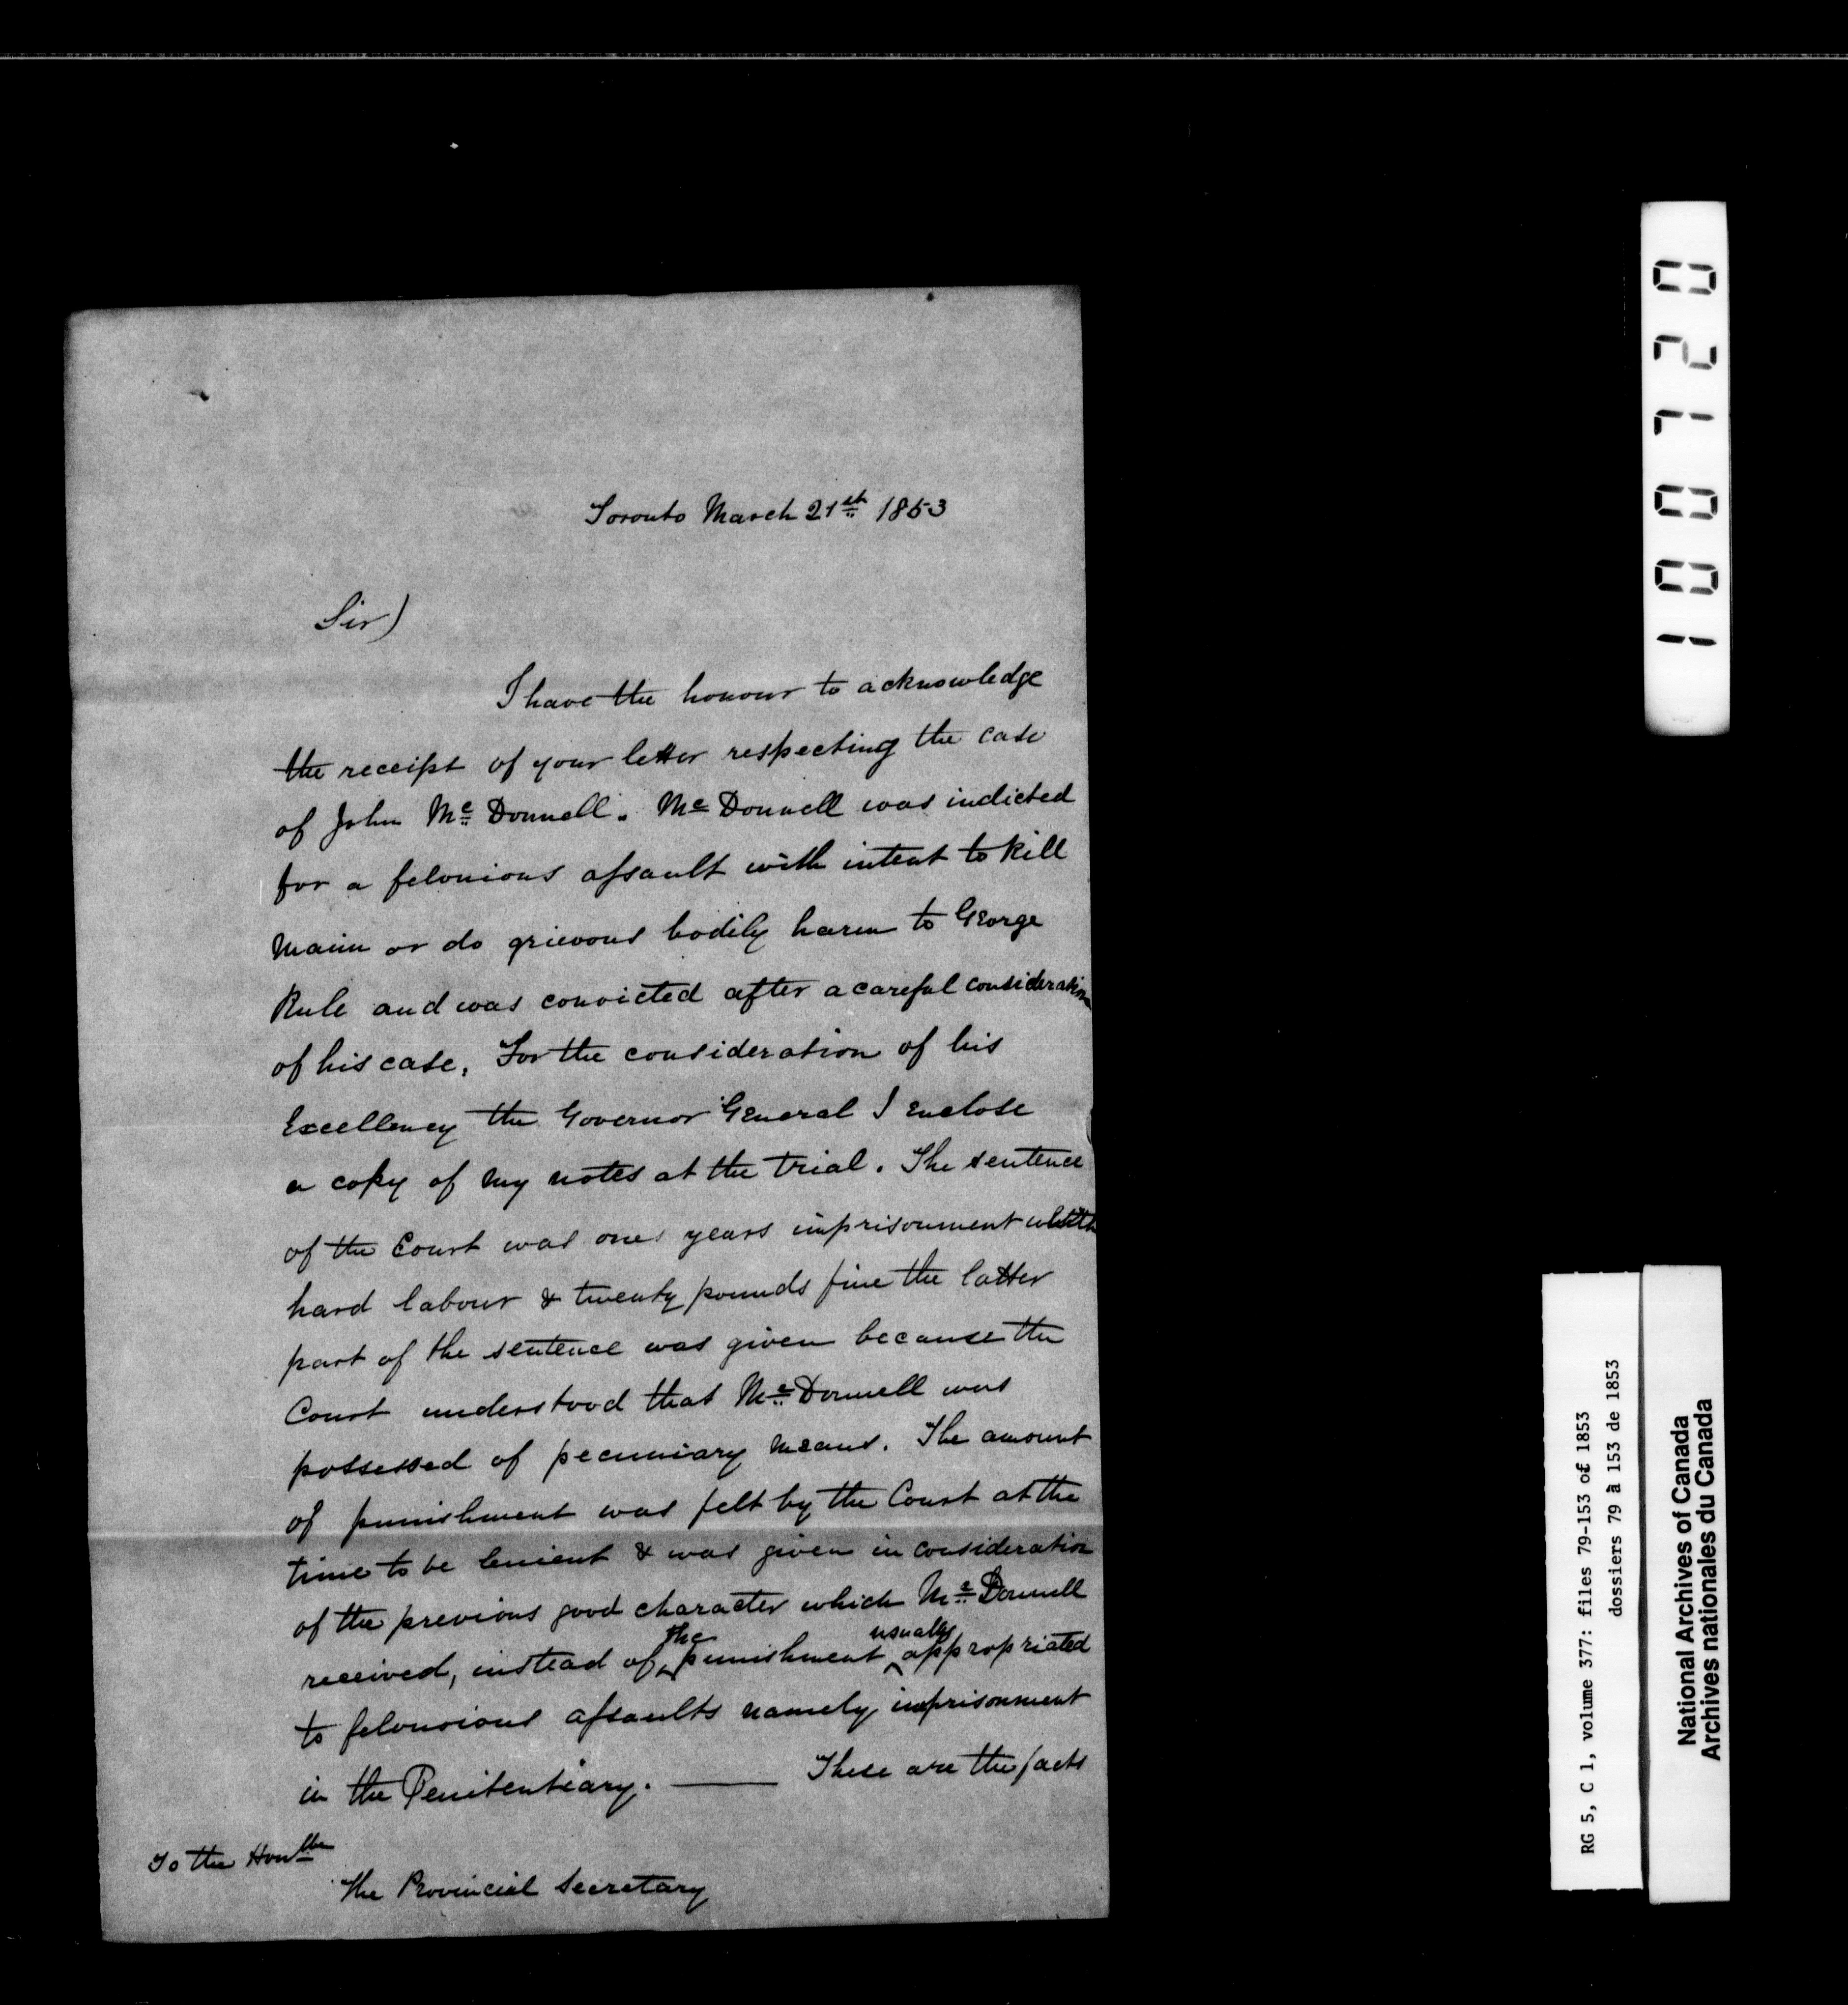 Toronto March 21st 1853
Sir)
I have the honour to acknowledge
the receipt of your letter respecting the case
of John Mc Donnell. Mc Donnell was indicted
for a felonious assault with intent to kill
maim or do grievous bodily harm to George
Rule and was convicted after a careful consideration
of his case. For the consideration of his
Excellency the Governor General I enclose
a copy of my notes at the trial. The sentence
of the Court was ones years imprisonment with
hard labour & twenty pounds fine the latter
part of the sentence was given because the
Court understood that Mc Donnell was
possessed of pecuniary means. The amount
of punishment was felt by the Court at the
time to be lenient & was given in consideration
of the previous good character which Mc Donnell
received, instead of the punishment usually appropriated
to felonoious assaults namely imprisonment
in the Penitentiary. —— These are the facts
To the Honble
The Provincial Secretary
100720
RG 5, C 1, volume 377: files 79-153 of 1853
dossiers 79 à 153 de 1853
National Archives of Canada
Archives nationales du Canada